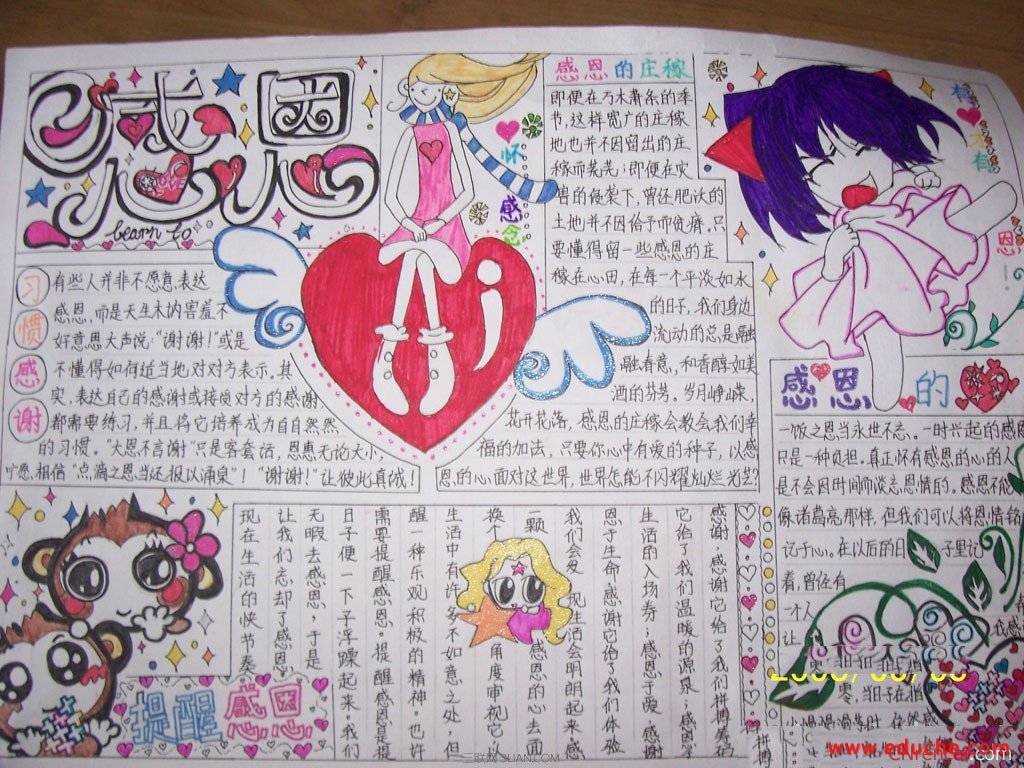 感恩
learn to
怀感恩
感恩的庄稼
即便在万木萧条的季
节,这样宽广的庄稼
地也并不因留出的庄
稼而荒芜;即便在灾
害的侵袭下,曾还肥沃的
土地并不因给予而贫瘠。只
要懂得留一些感恩的庄
稼在心田,在每一个平淡如水
的日子,我们身边
流动的总是融
融春意,和香醇如美
酒的芬芳。岁月峥嵘,
花开花落,感恩的庄稼会教会我们幸
福的加法,只要你心中有爱的种子,以感
恩的心面对这世界,世界怎能不闪耀灿烂光芒?
习惯感谢
有些人并非不愿意表达
感恩,而是天生木讷害羞不
好意思大声说:“谢谢!”或是
不懂得如何适当地对对方表示。其
实,表达自己的感谢或接馈对方的感谢,
都需要练习,并且将它培养成为自自然然
的习惯。“大恩不言谢”只是客套话,恩惠无论大小,
宁愿相信“点滴之恩当还报以涌泉”!“谢谢!”让彼此真诚!
有
恩
感恩的
一饭之恩当永世不忘。一时兴起的感恩
只是一种负担。真正怀有感恩的心的人
是不会因时间而淡忘恩情的。感恩不能
像诸葛亮那样,但我们可以将恩情铭
记于心。在以后的日子里记
着,曾经有
一个人
让
我感
零,当日子在指
提醒感恩
感谢,感谢它给了我们拼搏
它给了我们温暖的源泉
生活的入场券;感恩于爱,感谢
恩于生命,感谢它给了我们体验
我们会发现生活会明朗起来。感
一颗感恩的心去面
换个角度审视它以
生活中有许多不如意之处,但
醒一种乐观积极的精神。也许
需要提醒感恩。提醒感恩是提
日子便一下子浮躁起来。我们
无暇去感恩,于是
让我们忘却了感恩
现在生活的快节奏
三联网 3LIAN.COM
www.eduche.com
.com